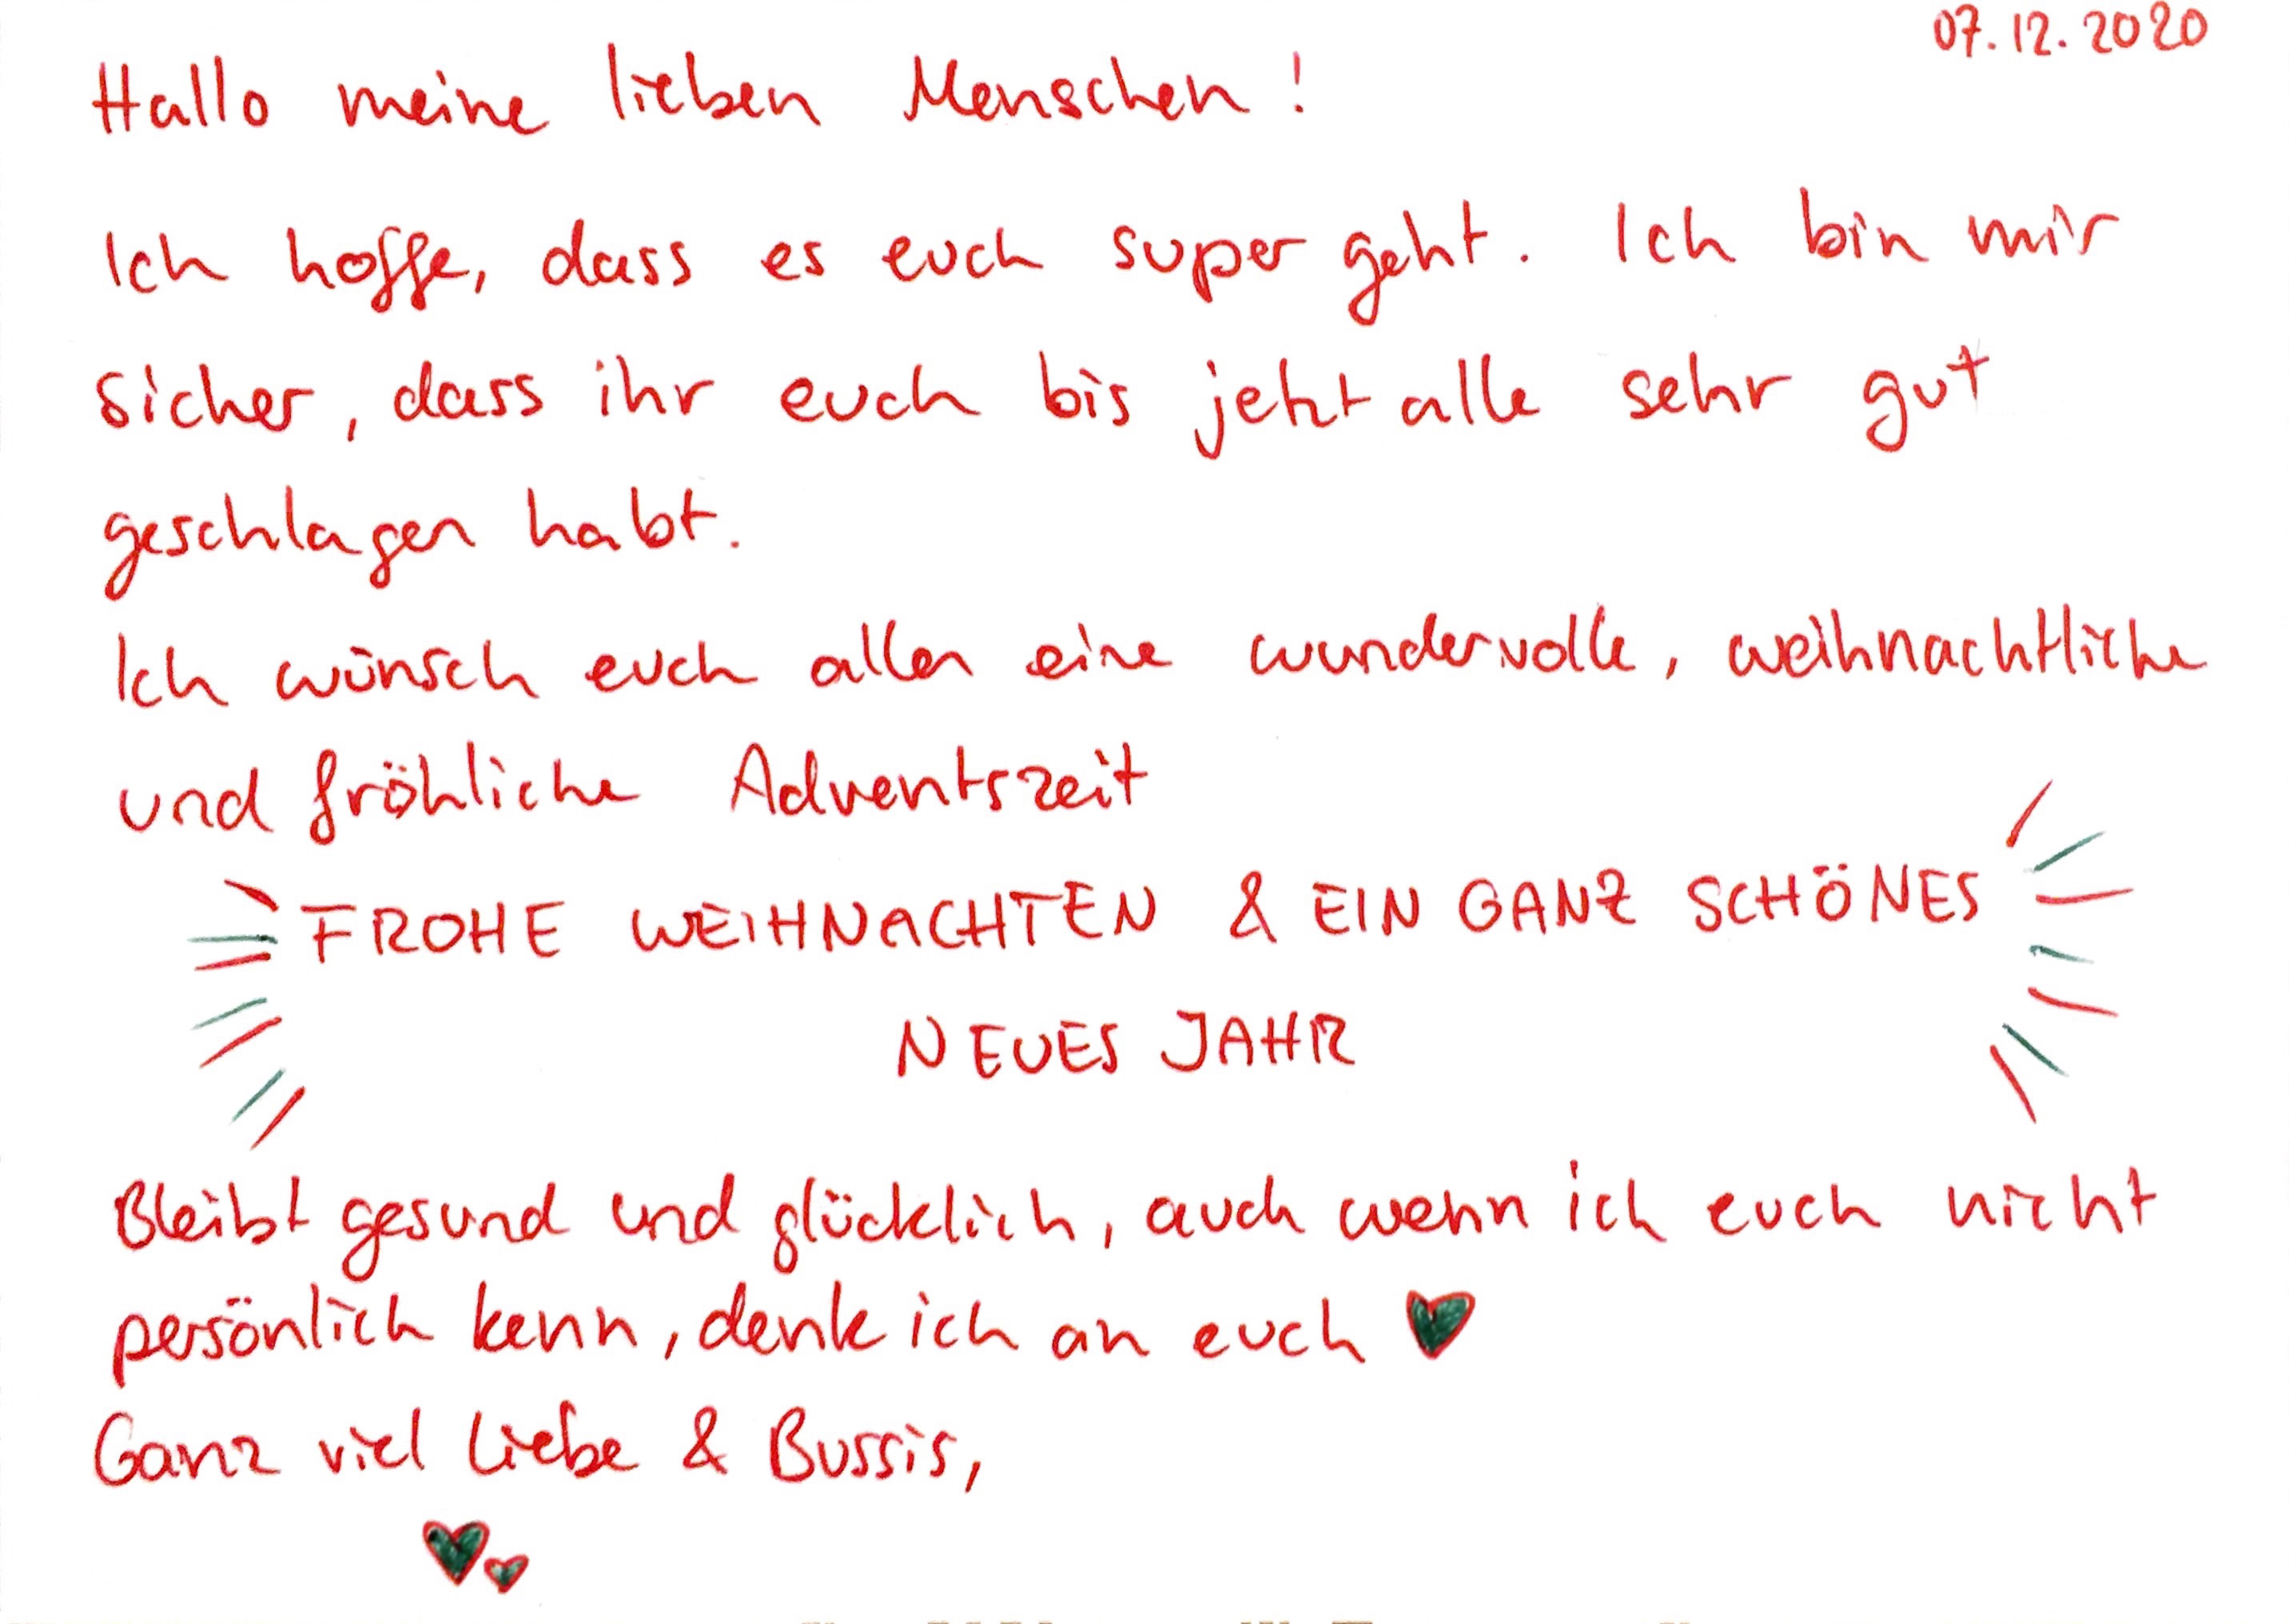 07.12.2020
Hallo meine lieben Menschen!
Ich hoffe, dass es euch super geht. Ich bin mir
sicher, dass ihr euch bis jetzt alle sehr gut
geschlagen habt.
Ich wünsch euch allen eine wundervolle, weihnachtliche
und fröhliche Adventszeit
FROHE WEIHNACHTEN & EIN GANZ SCHÖNES
NEUES JAHR
Bleibt gesund und glücklich, auch wenn ich euch nicht
persönlich kenn, denk ich an euch ♥
Ganz viel Liebe & Bussis,
♥♥